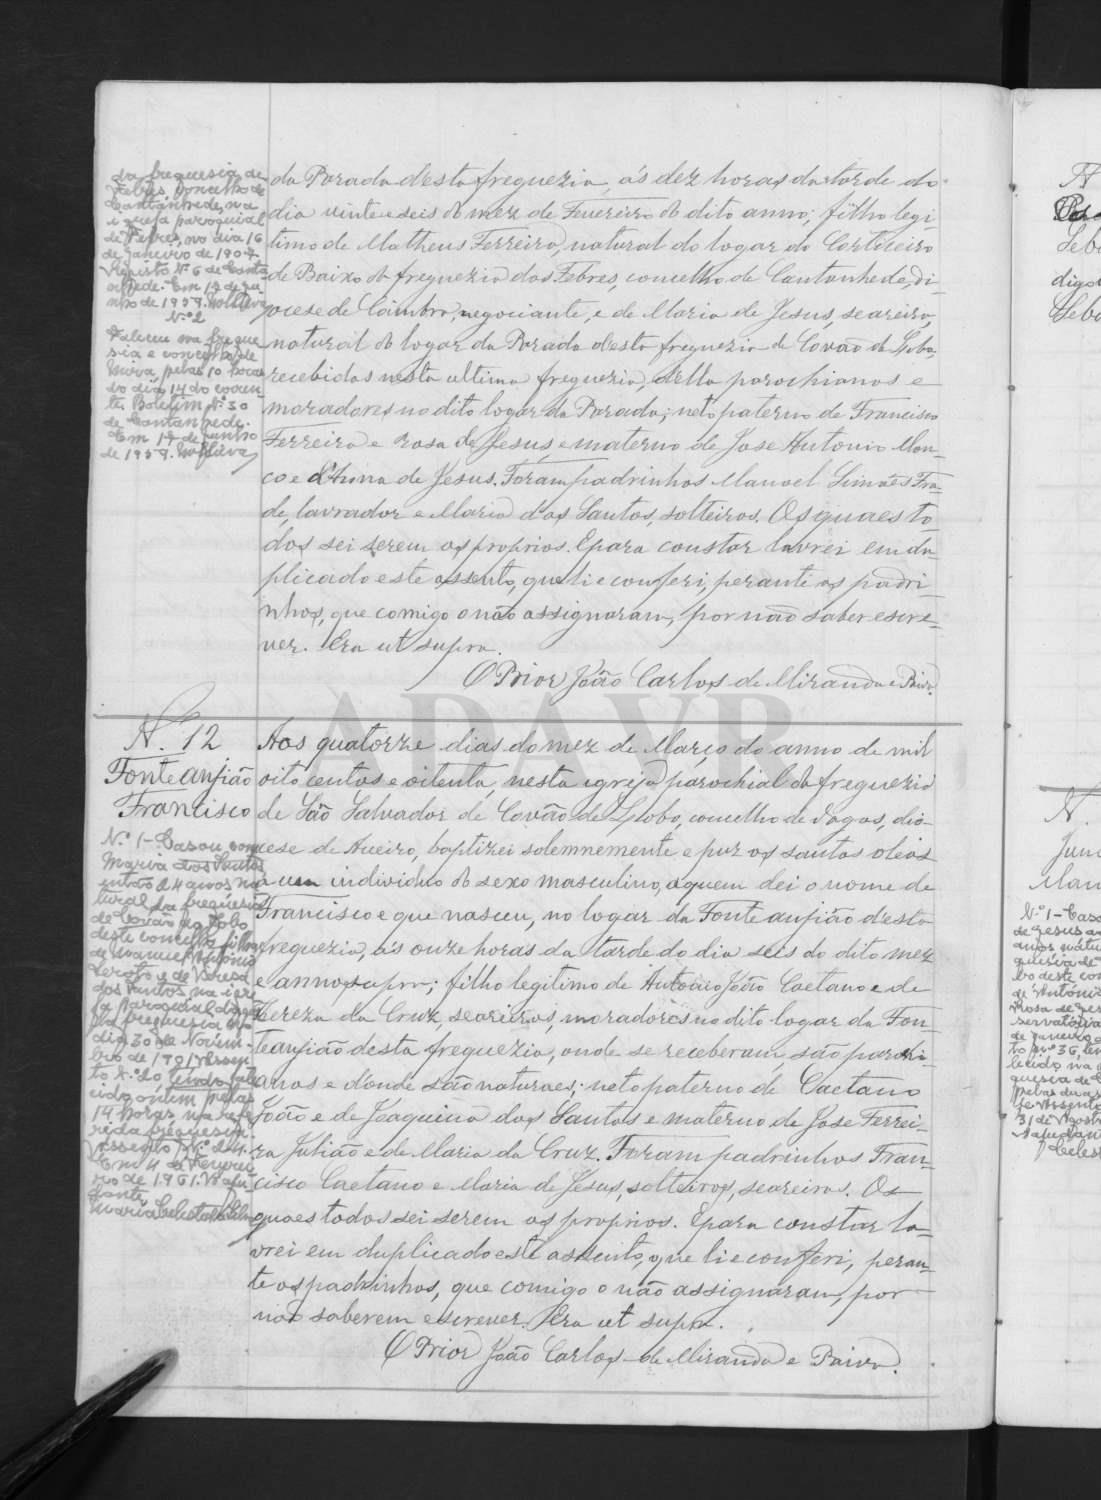 da freguesia de
Febres, concelho de
Cantanhede, na
igreja paroquial
de Febres, no dia 16
de janeiro de 1907
Registo Nº 6 de Canta-
nhede. Em 17 de ju-
nho de 1957.
Nº 2
Faleceu na fregue-
sia e concelho de
Mira pelas 10 horas
do dia 14 do corren-
te. Boletim Nº 30
de Cantanhede.
Em 17 de junho
de 1957.
da Parada d'esta freguezia, ás dez horas da tarde do
dia vinte e seis do mez de Fevereiro do dito anno; filho legi-
timo de Matheus Ferreiro, natural do logar do Corticeiro
de Baixo da freguezia das Febres, concelho de Cantanhede, di-
ocese de Coimbra, negociante, e de Maria de Jesus, seareira,
natural do logar da Parada d'esta freguezia de Covão do Lobo,
recebidos nesta ultima freguezia, della parochianos e
moradores no dito logar da Parada; neto paterno de Francisco
Ferreiro e Rosa de Jesus, e materno de Jose Antonio Mon-
co e d'Anna de Jesus. Foram padrinhos Manoel Simões Fra-
de, lavrador e Maria dos Santos, solteiros. Os quaes to-
dos sei serem os proprios. E para constar lavrei em du-
plicado este assento, que li e conferi, perante os padri-
nhos, que comigo o não assignaram, por não saber escre-
ver. Era ut supra.
O Prior João Carlos de Miranda e Paiva.
ADAVR
N. 12
Fonte anjião
Francisco
Nº 1 - Casou com
Maria dos Santos
então 24 anos na-
tural da freguesia
de Covão do Lobo
deste concelho filha
de Manuel António
e de Teresa
dos Santos na igre-
ja paroquial da
dita freguesia no
dia 30 de Novem-
bro de 1901 Assen-
to Nº 20, tendo fale-
cido ontem pelas
14 horas na refe-
rida freguesia.
Assento Nº 24.
Em 4 de Feverei-
ro de 1961. A aju-
dante
Maria Celeste
Aos quatorze dias do mez de Março do anno de mil
oito centos e oitenta, nesta igreja parochial da freguezia
de São Salvador de Covão do Lobo, concelho de Vagos, dio-
cese de Aveiro, baptizei solemnemente e puz os santos oleos
a um individuo do sexo masculino, a quem dei o nome de
Francisco e que nasceu, no logar da Fonte anjião d'esta
freguezia, ás onze horas da tarde do dia seis do dito mez
e anno supra; filho legitimo de Antonio João Caetano e de
Thereza da Cruz, seareiros, moradores no dito logar da Fon-
te anjião desta freguezia, onde se receberam, são parochi-
anos e d'onde são naturaes; neto paterno de Caetano
João e de Joaquina dos Santos e materno de Jose Ferrei-
ra Julião e de Maria da Cruz. Foram padrinhos Fran-
cisco Caetano e Maria de Jesus, solteiros, seareiros. Os
quaes todos sei serem os proprios. E para constar la-
vrei em duplicado este assento, que li e conferi, peran-
te os padrinhos, que comigo o não assignaram, por
não saberem escrever. Era ut supra.
O Prior João Carlos de Miranda e Paiva.
A
Lobo
digo
Lobo
N.
Man
Nº 1 - Caso
de Jesus
de António
Rosa de
de janeiro
31 de Agosto
Celes